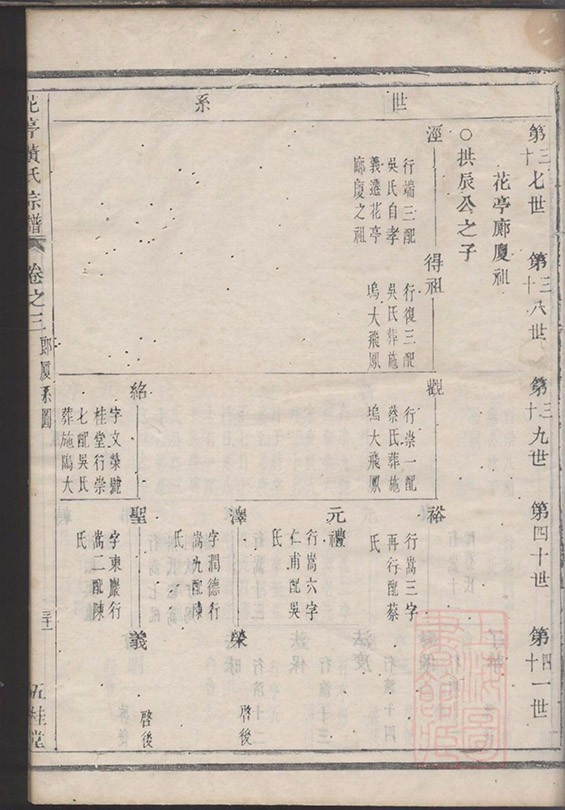 世系
第三十七世
第三十八世
第三十九世
第四十世
第四十一世
花亭廊廈祖
○拱辰公之子
涇
行端三配
吳氏自孝
義遷花亭
廊廈之祖
得祖
行復三配
吳氏葬施
塢大飛鳳
觀
行崇一配
蔡氏葬施
塢大飛鳳
裕
行嵩三字
再行配蔡
氏
元禮
行嵩六字
仁甫配吳
氏
澤
字潤德行
嵩九配陳
氏
榮
啓後
絡
字文榮號
桂堂行崇
七配吳氏
葬施塢大
聖
字東巖行
嵩二配陳
氏
義
啓後
花亭黃氏宗譜
卷之三
廊廈系圖
五桂堂